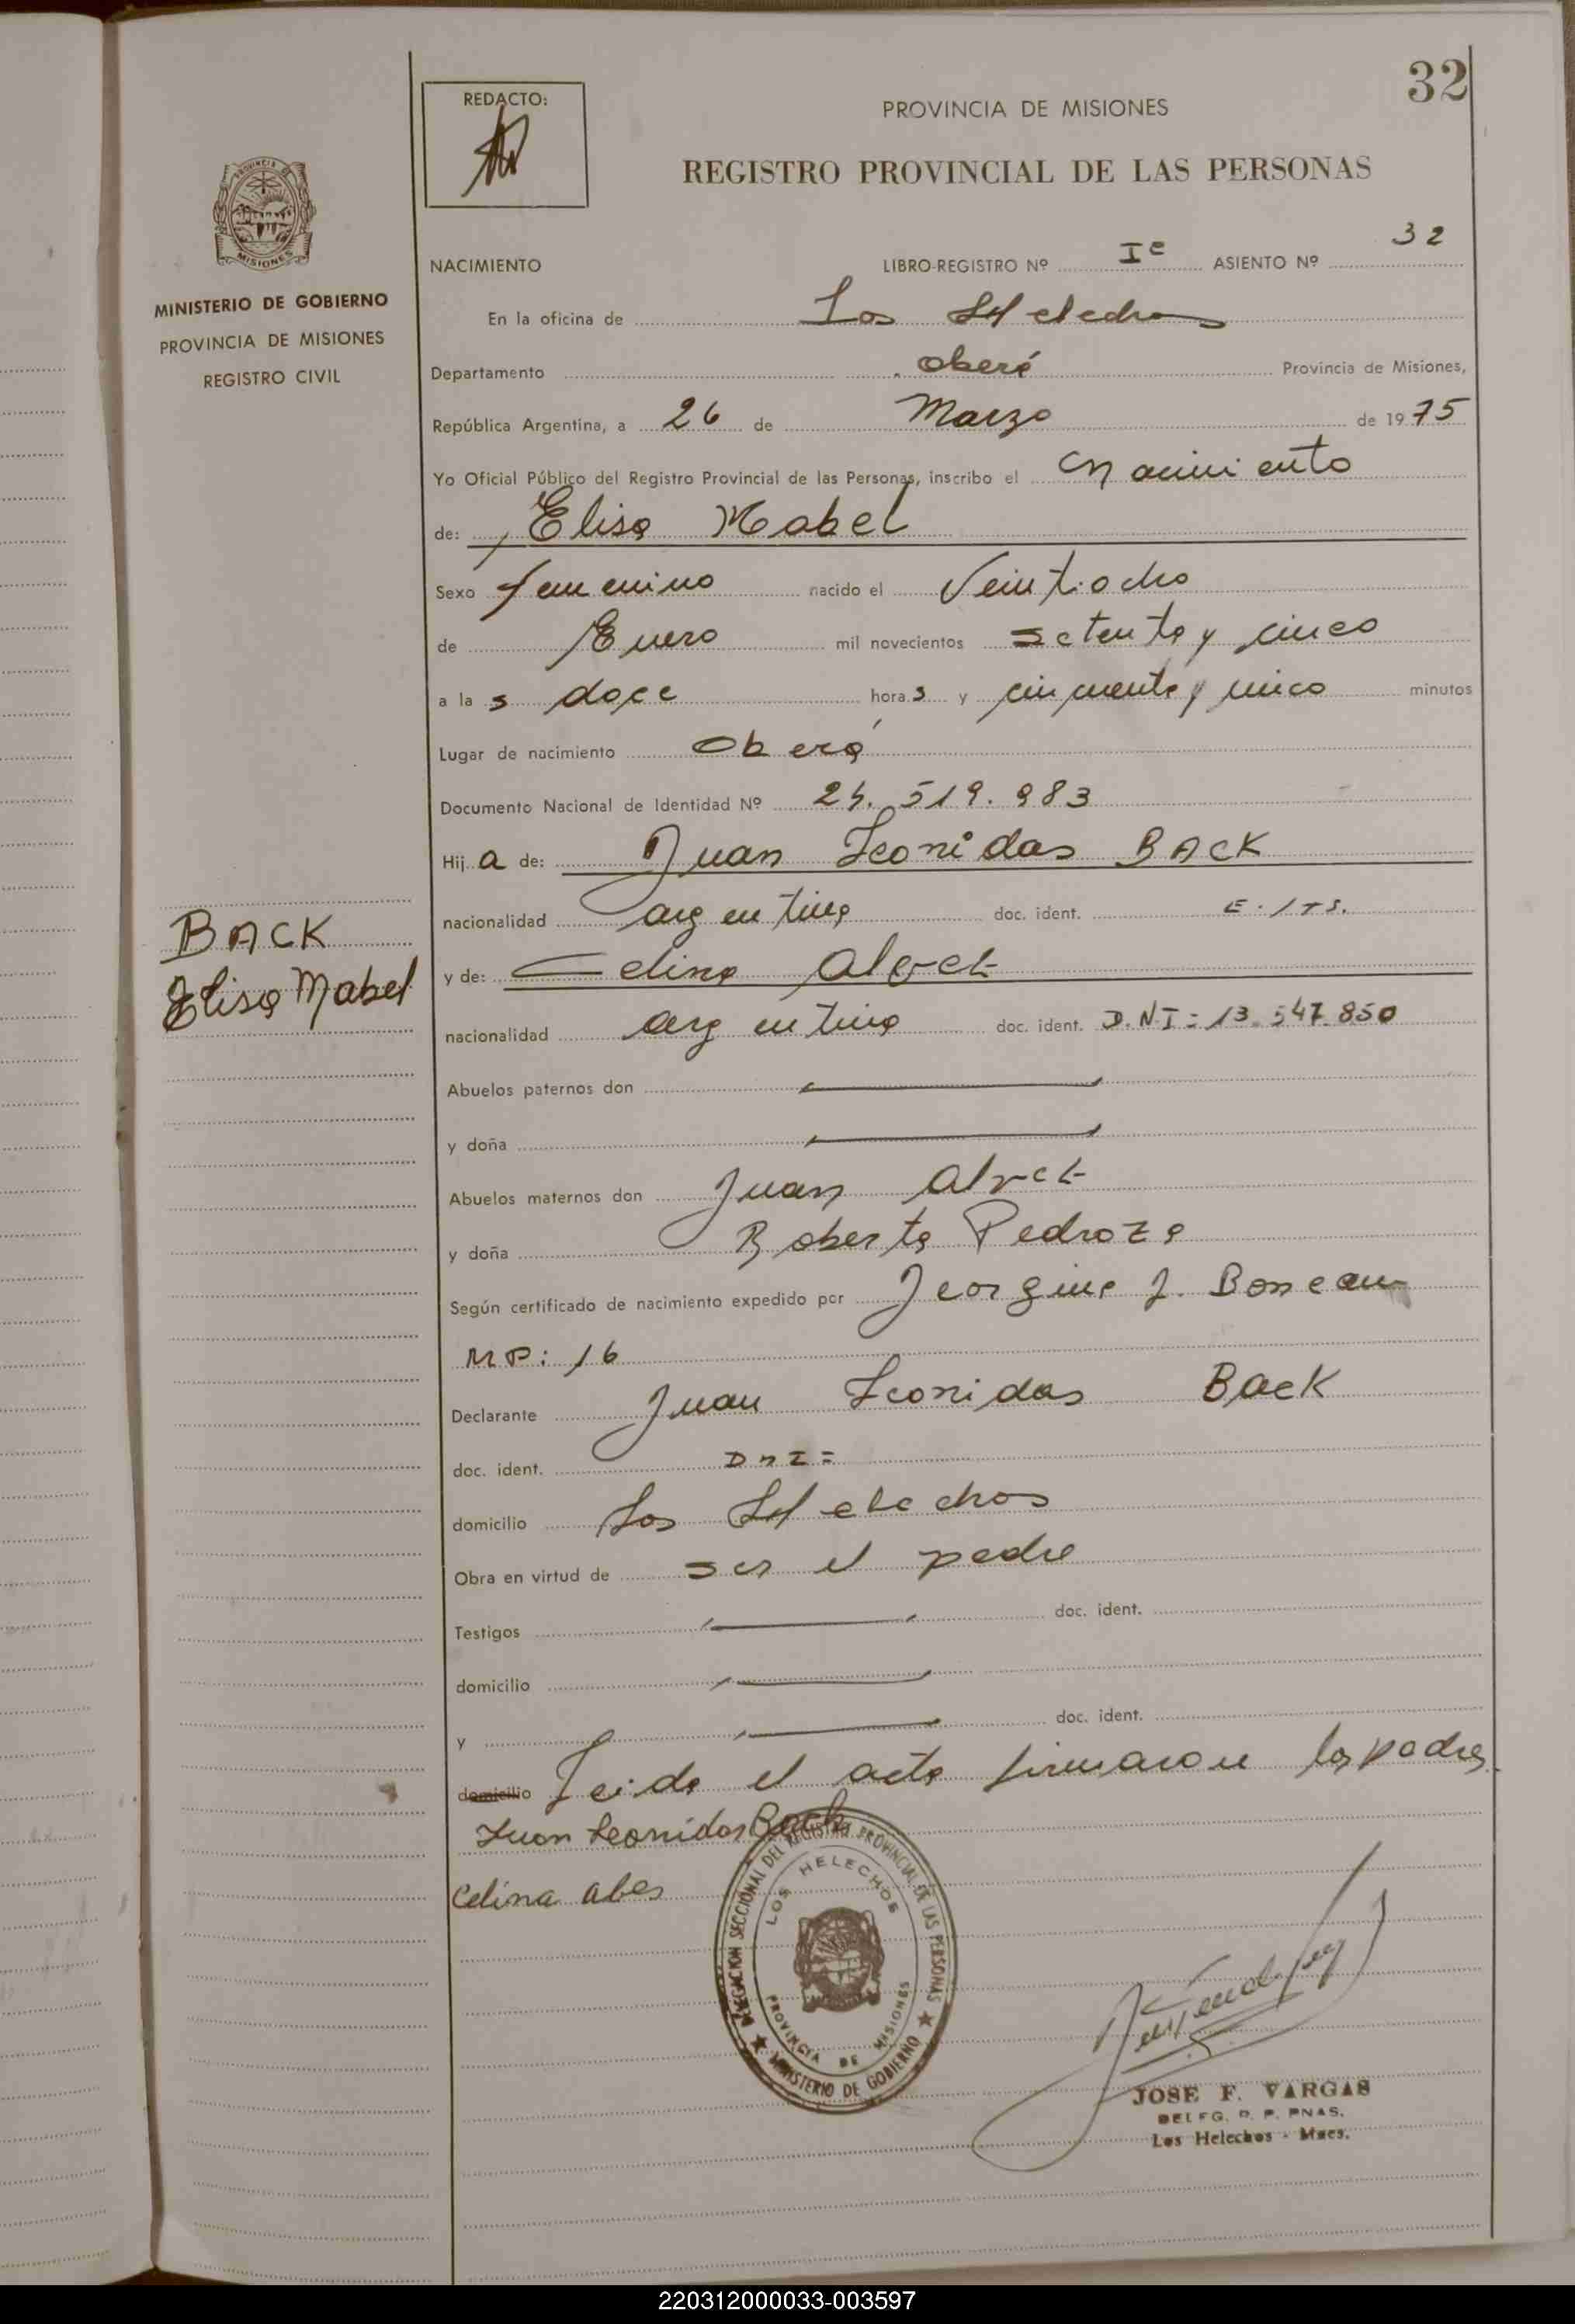 32
REDACTO:
PROVINCIA DE MISIONES
REGISTRO PROVINCIAL DE LAS PERSONAS
MISIONES
MINISTERIO DE GOBIERNO
PROVINCIA DE MISIONES
REGISTRO CIVIL
NACIMIENTO LIBRO-REGISTRO Nº Iº ASIENTO Nº 32
En la oficina de Los Helechos
Departamento Oberá Provincia de Misiones,
República Argentina, a 26 de Marzo de 1975
Yo Oficial Público del Registro Provincial de las Personas, inscribo el nacimiento
de: Elisa Mabel
Sexo femenino nacido el Veintiocho
de Enero mil novecientos setenta y cinco
a las doce horas y cincuenta y cinco minutos
Lugar de nacimiento Oberá
Documento Nacional de Identidad Nº 24.519.983
Hija de: Juan Leonidas BACK
nacionalidad argentina doc. ident.
BACK
Elisa Mabel
y de: Celina
nacionalidad argentina doc. ident. D.N.I: 13.547.850
Abuelos paternos don
y doña
Abuelos maternos don Juan
y doña Roberta Pedroza
Según certificado de nacimiento expedido por Jeorgina J.
MP: 16
Declarante Juan Leonidas Back
doc. ident. DNI=
domicilio Los Helechos
Obra en virtud de ser el padre
Testigos doc. ident.
domicilio
y doc. ident.
domicilio Leida el acta firmaron los padres
Juan Leonidas Back
Celina
DELEGACION SECCIONAL DEL REGISTRO PROVINCIAL DE LAS PERSONAS
LOS HELECHOS
PROVINCIA DE MISIONES
MINISTERIO DE GOBIERNO
JOSE F. VARGAS
DELEG. R. P. PNAS.
Los Helechos - Mnes.
220312000033-003597